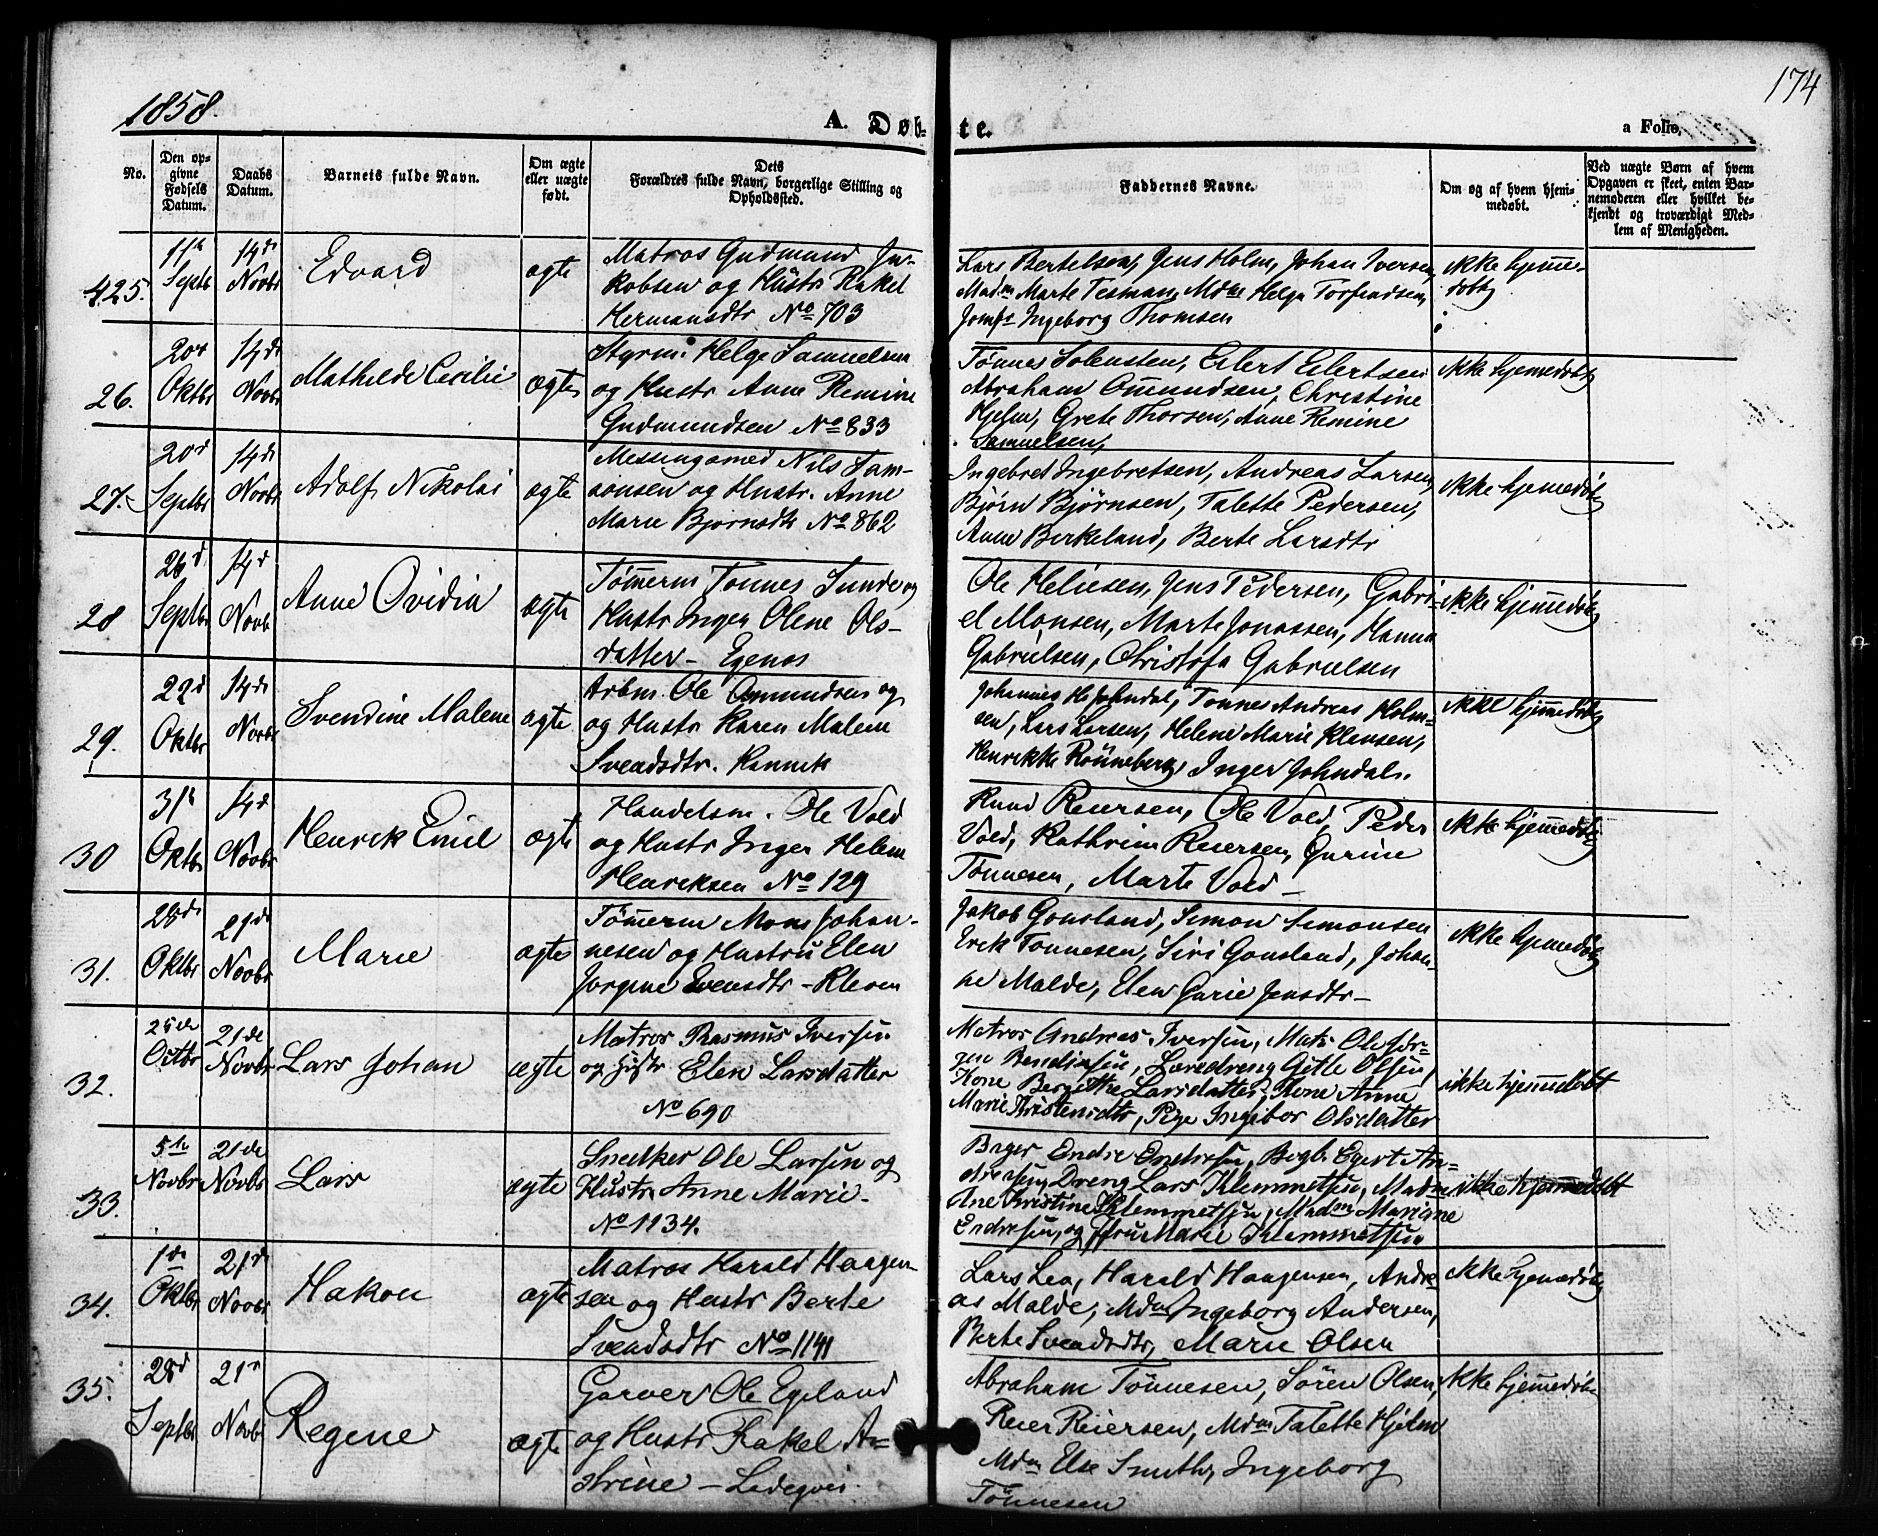 1858.
174
A. Døb-
te.
a Folio.
No.
Den op-
givne
Fødsels
Datum.
Daabs
Datum.
Barnets fulde Navn.
Om ægte
eller uægte
født.
Dets
Forældres fulde Navn, borgerlige Stilling og
Opholdssted.
Faddernes Navne.
Om og af hvem hjem-
medøbt.
Ved uægte Børn af hvem
Opgaven er skeet, enten Bar-
nemoderen eller hvilket be-
kjendt og troværdigt Med-
lem af Menigheden.
425.
11te
Septbr
14de
Novbr
Edvard
ægte
Matros Gudmund Ja-
kobsen og Hustr Rakel
Hermansdtr No 703
Lars Bertelsen, Jens Holm, Johan Iversen,
Madm Marte Tesman, Mdme Helga Torfindsen,
Jomfr Ingeborg Thomsen
ikke hjemme-
døbt
26.
20de
Oktbr
14de
Novbr
Mathilde Cecilie
ægte
Styrm. Helge Samuelsen
og Hustr Anne Remine
Gudmundsen No 833
Tønnes Solensten, Eilert Eilertsen
Abraham Omundsen, Christine
Hjelm, Grete Thorsen, Anne Remine
Samuelsen,
ikke hjemmedøbt
27.
20d
Septbr
14de
Novbr
Adolf Nikolai
ægte
Messingsmed Nils Sam-
sonsen og Hustr. Anne
Marie Bjørnsdtr No 862
Ingebret Ingebretsen, Andreas Larsen,
Bjørn Bjørnsen, Talette Pedersen,
Anne Berkeland, Berte Larsdtr
ikke hjemmedøbt
28
26d
Septbr
14d
Novbr
Anne Ovidia
ægte
Tømmerm Tønnes Sunde og
Hustr Inger Olene Ols-
datter - Egenes
Ole Heliesen, Jens Pedersen, Gabri-
el Monsen, Marte Jonassen, Hanna
Gabrielsen, Christofa Gabrielsen
ikke hjemmedøbt
29.
22d
Oktbr
14de
Novbr
Svendine Malene
ægte
Arbm. Ole Ommundsen og
og Hustr Karen Malene
Svendsdtr. Kannik
Johannes H. Johndal, Tønnes Andreas Holm-
sen, Lars Larsen, Helene Marie Klensen,
Henrikke Rønneberg, Inger Johndal.
ikke hjemmedøbt
30
31te
Oktbr
14d
Novbr
Henrik Emil
ægte
Handelsm. Ole Vold
og Hustr Inger Helene
Henriksen No 129
Knud Reiersen, Ole Vold, Peder
Vold, Kathrine Reiersen, Gurine
Tønnesen, Marte Vold -
ikke hjemmedøbt
31.
28de
Oktbr
21de
Novbr
Marie
ægte
Tømmerm Mons Johan-
nesen og Hustru Elen
Jorgine Svensdtr - Kleven
Jakob Gousland, Simon Simonsen
Erik Tønnesen, Siri Gousland, Johan-
ne Malde, Elen Gurie Jensdtr -
ikke hjemmedøbt
32.
25de
Octbr
21de
Novbr
Lars Johan
ægte
Matros Rasmus Iversen
og Hustr Elen Larsdatter
No 690
Matros Andreas Iversen, Matr Ole Jør-
gen Bendixsen, Læredreng Gitle Olsen,
Kone Bergithe Larsdatter, Kone Anne
Marie Kristensdtr, Pige Ingebor Olsdatter
ikke hjemmedøbt
33.
5te
Novbr
21de
Novbr
Lars
ægte
Snedker Ole Larsen og
Hustr Anne Marie -
No 1134.
Bager Endre Endresen, Bogb. Egert An-
dresen, Dreng Lars Klemmetsen, Madm
Ane Kristine Klemmetsen, Madm Mariane
Endresen, og Jfru Marie Klemmetsen
ikke hjemmedøbt
34.
1de
Oktbr
21d
Novbr
Hakon
ægte
Matros Harald Haagen-
sen og Hustr Berte
Svendsdtr No 1141
Lars Lea, Harald Haagensen, Andre-
as Malde, Mdm Ingeborg Andersen,
Berte Svendsdtr, Marie Olsen
ikke hjemmedøbt
35.
28d
Septbr
21d
Novbr
Regene
ægte
Garver Ole Egeland
og Hustr Rakel A-
strine - Ladegrei.
Abraham Tønnesen, Søren Olsen,
Reier Reiersen, Mdm Talette Hjelm
Mdm Else Smith, Ingeborg
Tønnesen
ikke hjemmedøbt